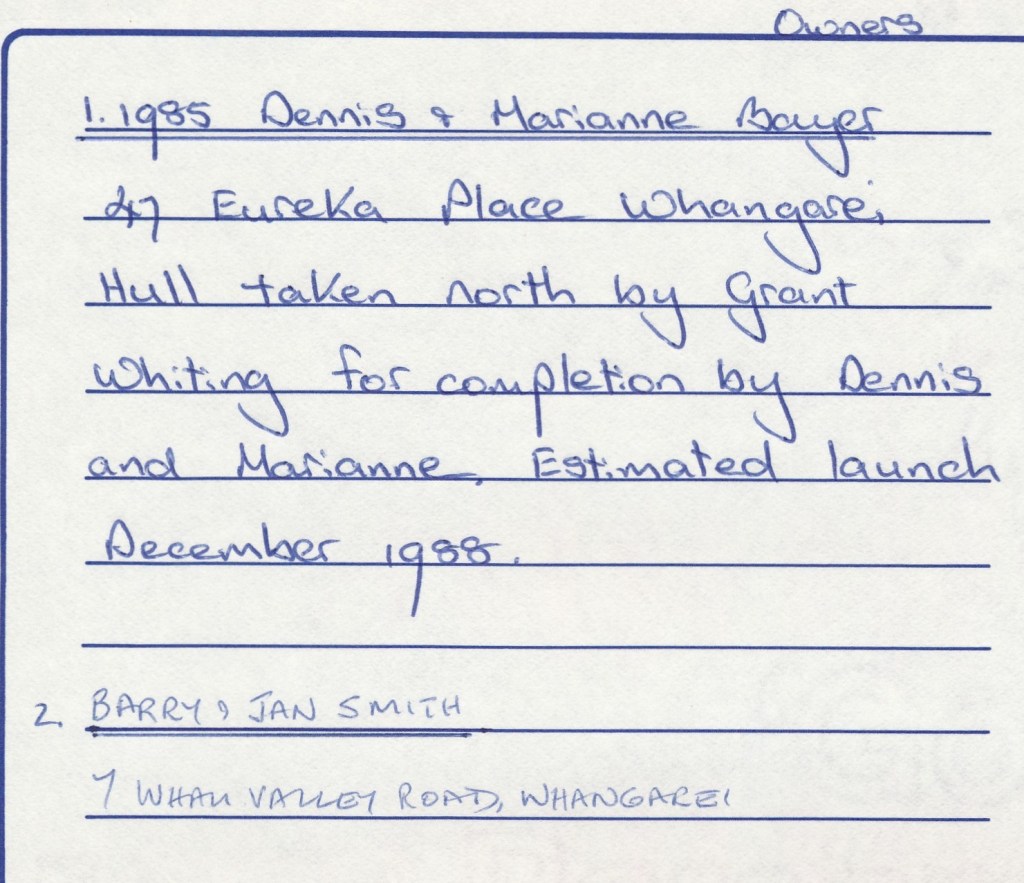 Owners
1. 1985 Dennis & Marianne Bayer
47 Eureka Place Whangarei
Hull taken north by Grant
Whiting for completion by Dennis
and Marianne. Estimated launch
December 1988.
2. BARRY & JAN SMITH
7 WHAU VALLEY ROAD, WHANGAREI